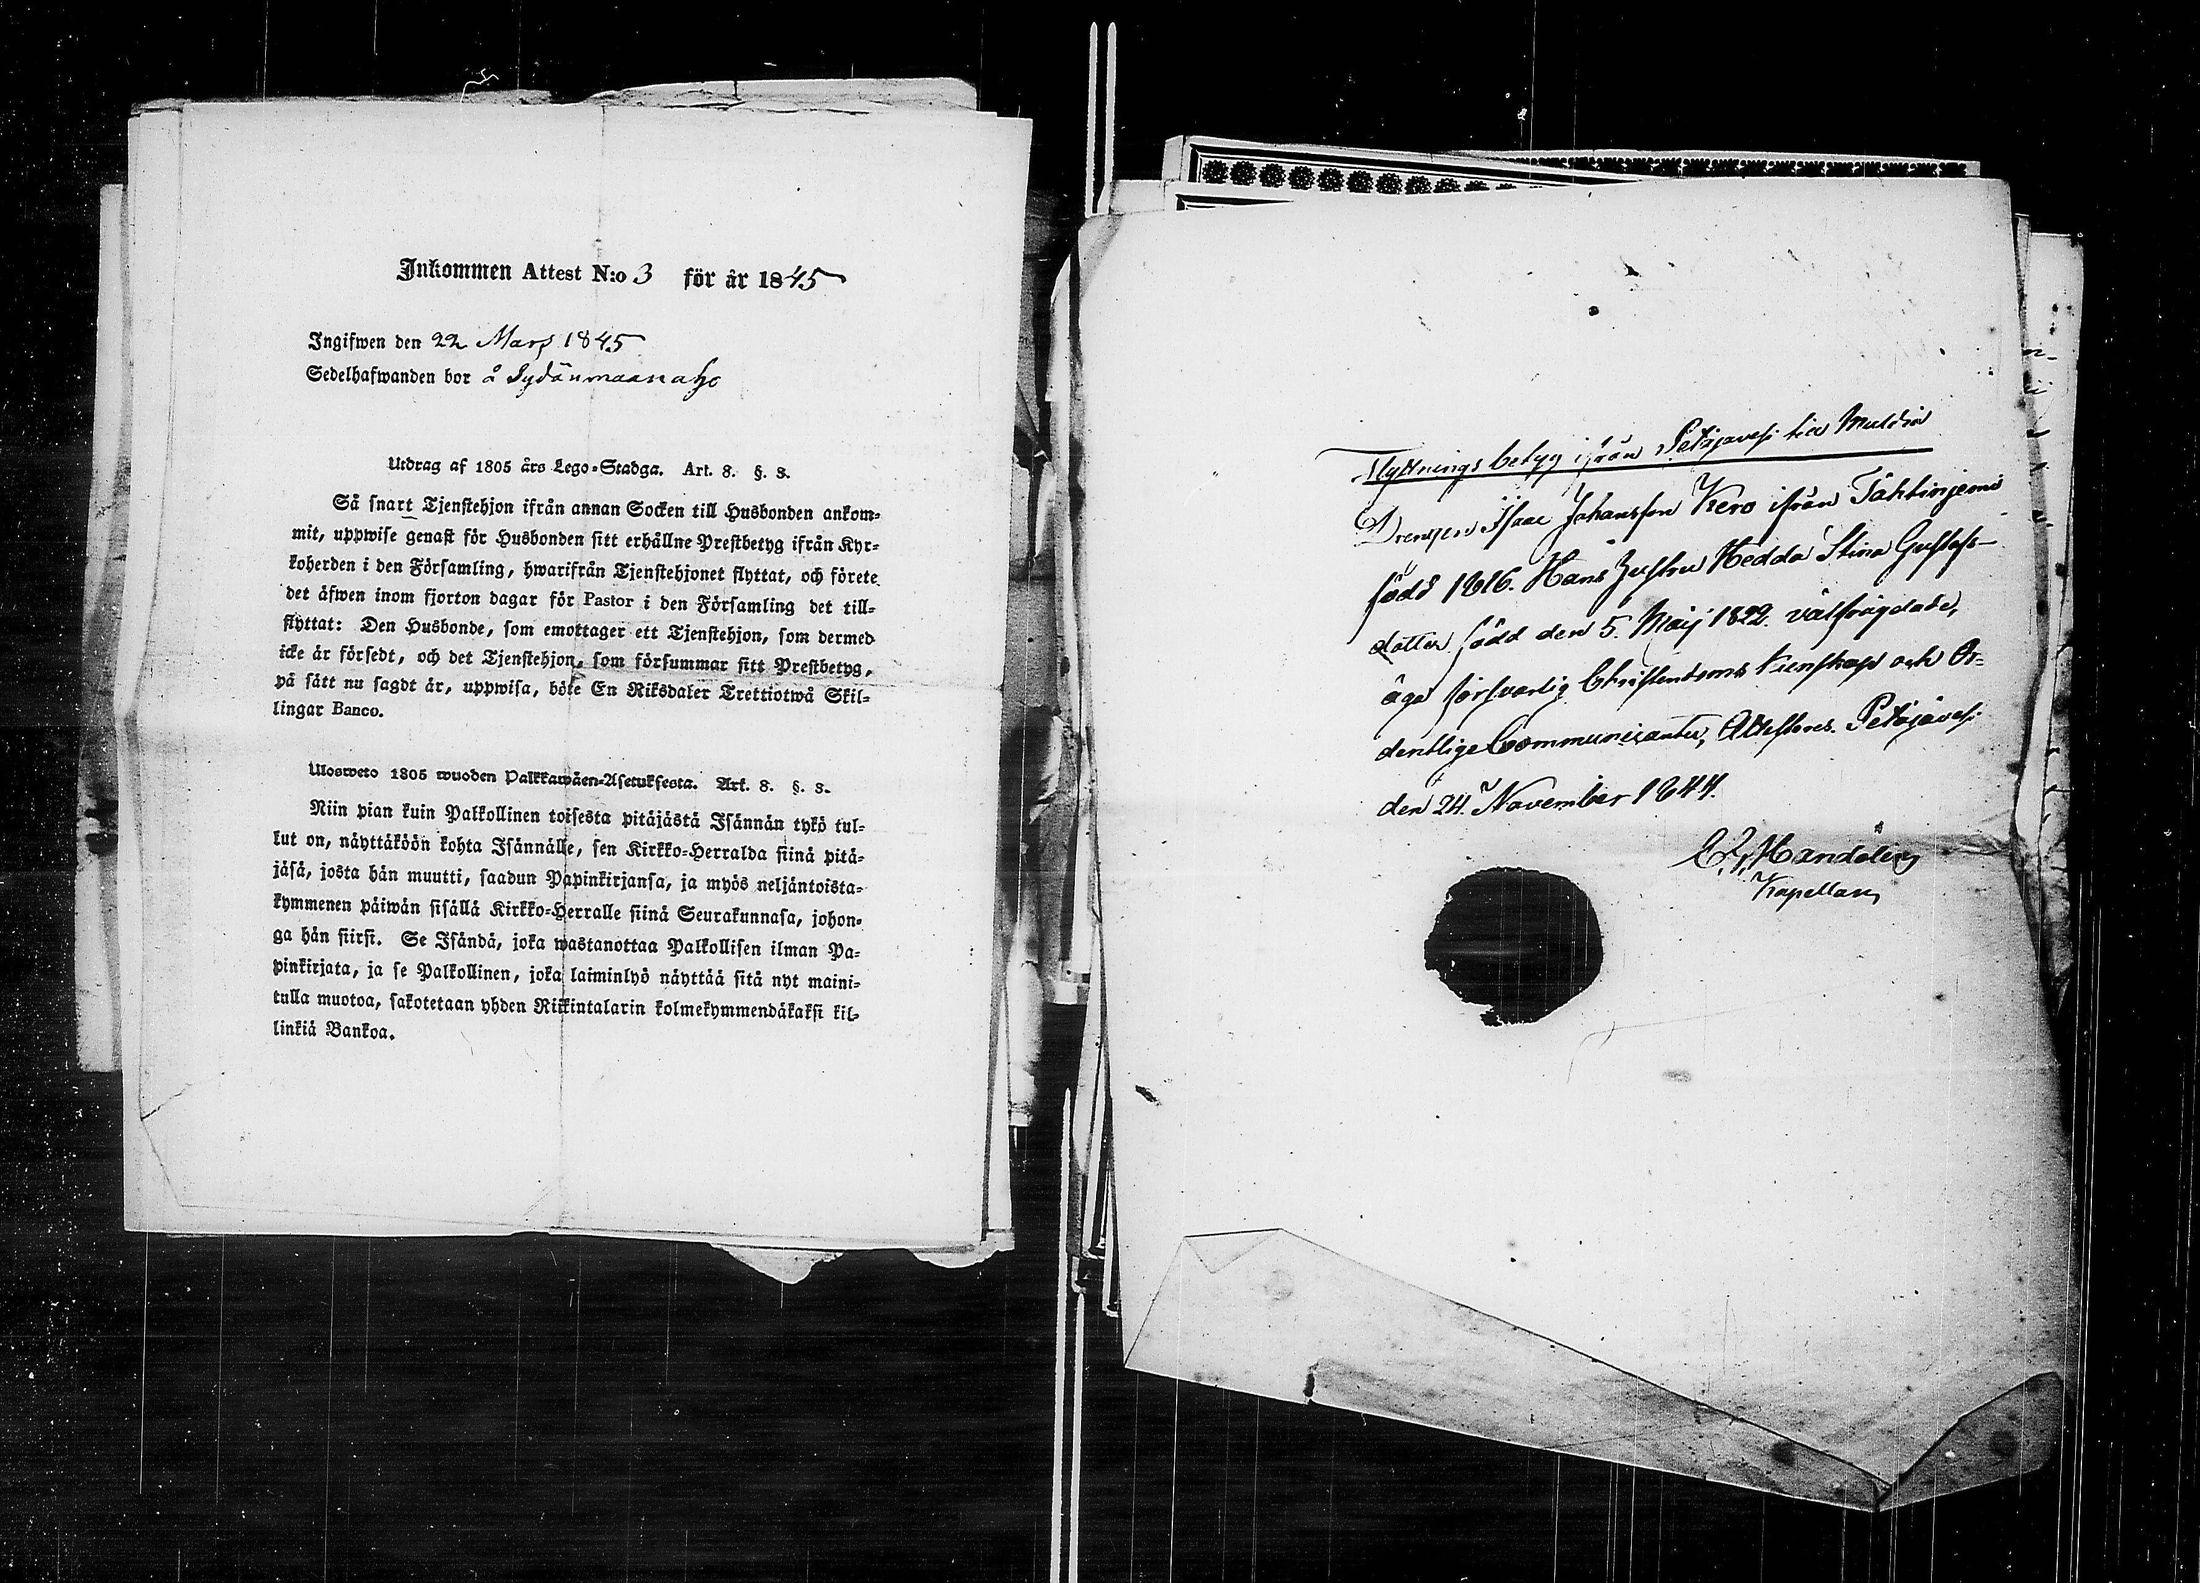 Inkommen Attest N:o 3 för år 1845
Ingifwen den 22 Mars 1845
Sedelhafwanden bor å Sydänmaanaho
Utdrag af 1805 års Lego-Stadga. Art. 8. §. 3.
Så snart Tjenstehjon ifrån annan Socken till Husbonden ankom-
mit, uppwise genast för Husbonden sitt erhållne Prestbetyg ifrån Kyr-
koherden i den Församling, hwarifrån Tjenstehjonet flyttat, och förete
det äfwen inom fjorton dagar för Pastor i den Församling det till-
flyttat: Den Husbonde, som emottager ett Tjenstehjon, som dermed
icke är försedt, och det Tjenstehjon, som försummar sitt Prestbetyg,
på sätt nu sagdt är, uppwisa, böte En Riksdaler Trettiotwå Skil-
lingar Banco.
Ulosweto 1805 wuoden Palkkawäen-Asetuksesta. Art. 8. §. 3.
Niin pian kuin Palkollinen toisesta pitäjästä Isännän tykö tul-
lut on, näyttäköön kohta Isännälle, sen Kirkko-Herralda siinä pitä-
jäsä, josta hän muutti, saadun Papinkirjansa, ja myös neljäntoista-
kymmenen päiwän sisällä Kirkko-Herralle siinä Seurakunnasa, johon-
ga hän siirsi. Se Isändä, joka wastanottaa Palkollisen ilman Pa-
pinkirjata, ja se Palkollinen, joka laiminlyö näyttää sitä nyt maini-
tulla muotoa, sakotetaan yhden Riikintalarin kolmekymmendäkaksi kil-
linkiä Bankoa.
Flyttnings betyg ifrån Petäjävesi till Muldia
Drengen Isaac Johansson Kero ifrån Tähtiniemi
född 1816. Hans Hustru Hedda Stina Gustafs-
dotter född den 5. Maij 1822. välfrägdade,
äga försvarlig Christendoms kunskap och Or-
dentlige Communicanter, Attesteras. Petäjävesi
den 24. November 1844.
Kapellan